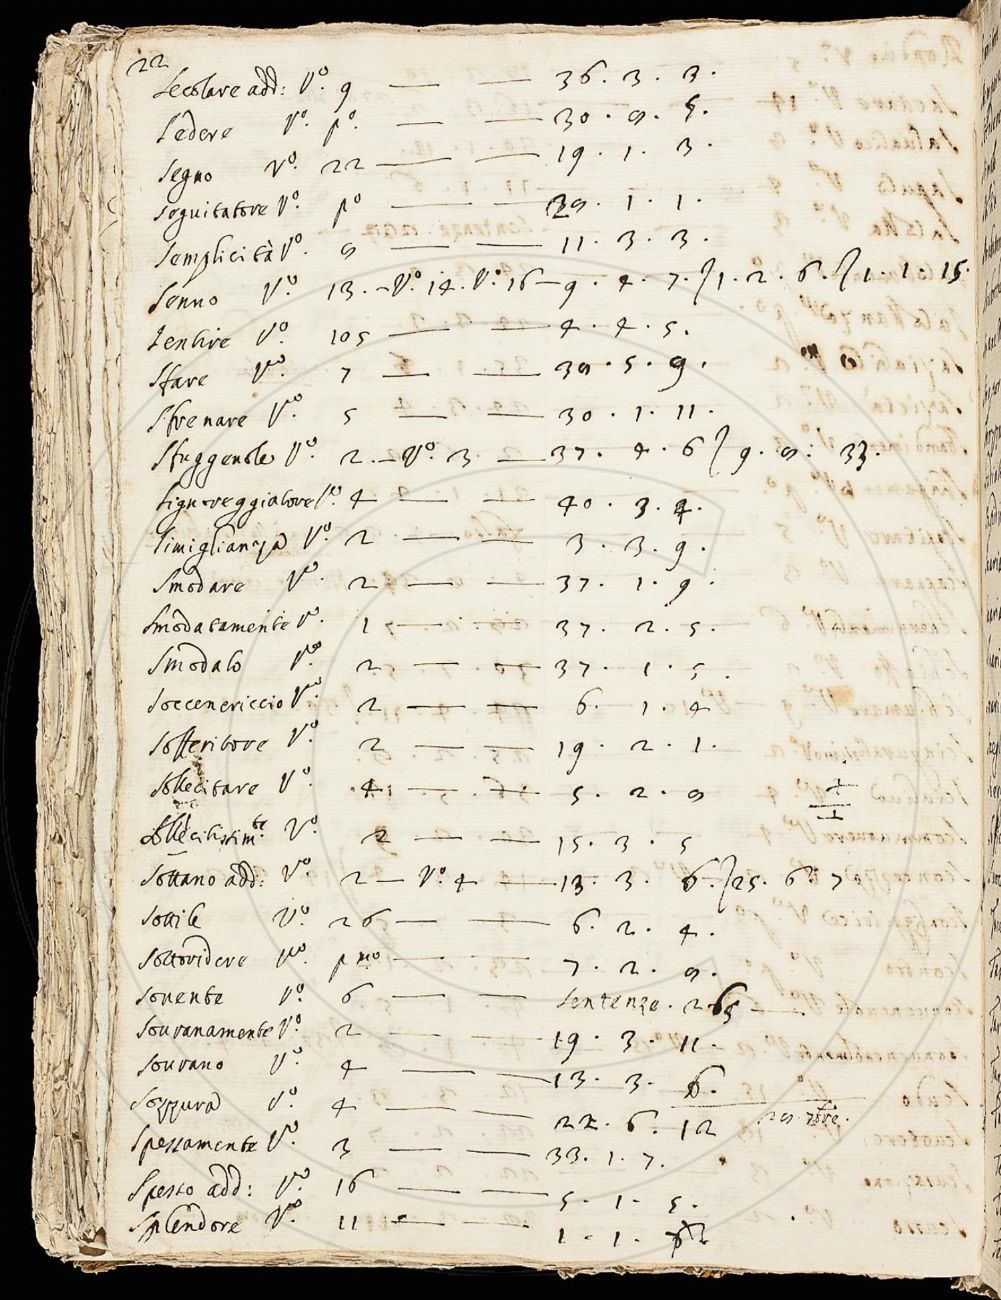 22
Secolare add: Vº. 9 — — 36. 3. 3.
Sedere Vº. pº. — — 30. 8. 5.
Segno Vº. 22 — — 19. 1. 3.
Seguitatore Vº. pº — — 1. 1.
Semplicità Vº. 8 — — 11. 3. 3.
Senno Vº. 13. — Vº. 14. Vº. 16 — 9. 4. 7. } 1. 2. 6. } 1. 1. 15.
Sentire Vº. 105 — — 4. 4. 5.
Sfare Vº. 7 — — 38. 5. 9.
Sfrenare Vº. 5 — — 30. 1. 11.
Sfuggevole Vº. 2. — Vº. 3 — 37. 4. 6 } 9. 8: 33.
Signoreggiatore Vº. 4 — — 40. 3. 4.
Simiglianza Vº. 2. — — 3. 3. 9.
Smodare Vº. 2 — — 37. 1. 9
Smodatamente Vº. 1 — — 37. 2. 5.
Smodato Vº. 2 — — 37. 1. 5.
Soccenericcio Vº. 2 — — 6. 1. 4
Sofferitore Vº. 2 — — 19. 2. 1.
Sollecitare Vº. 4 — — 5. 2. 8
Vº. 2 — — 15. 3. 5
Sottano add: Vº. 2 — Vº. 4 — 13. 3. 6. } 25. 6. 7
Sottile Vº. 26 — — 6. 2. 4.
Sottoridere Vº. pmo — — 7. 2. 8.
Sovente Vº. 6 — — Sentenze. 265 —
Sovranamente Vº. 2 — — 19. 3. 11.
Sovrano Vº. 4 — — 13. 3. 6.
Sozzura Vº. 4 — — 22. 6. 12
Spessamente Vº. 3 — — 33. 1. 7.
Spesso add: Vº. 16 — — 5. 1. 5.
Splendore Vº. 11 — — 1. 1.